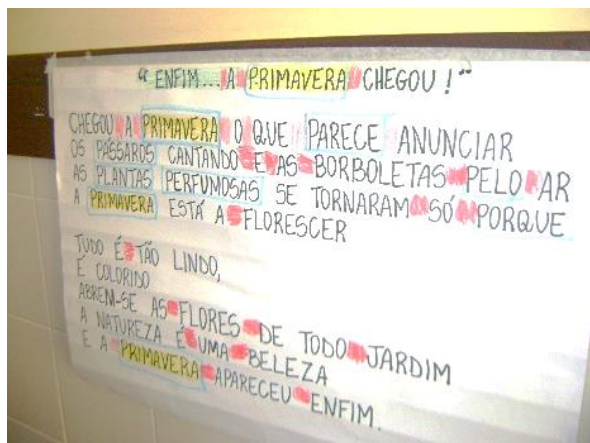 “ENFIM... A PRIMAVERA CHEGOU!”
CHEGOU A PRIMAVERA O QUE PARECE ANUNCIAR
OS PÁSSAROS CANTANDO E AS BORBOLETAS PELO AR
AS PLANTAS PERFUMOSAS SE TORNARAM SÓ PORQUE
A PRIMAVERA ESTÁ A FLORESCER
TUDO É TÃO LINDO,
É COLORIDO
ABREM-SE AS FLORES DE TODO JARDIM
A NATUREZA É UMA BELEZA
E A PRIMAVERA APARECEU ENFIM.